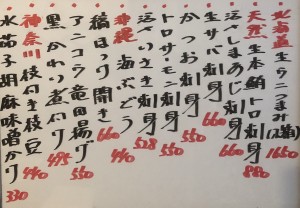 北海道 生ウニつまみ(2貫) 1650
天然 生本鮪トロ刺身 880
活しまあじ刺身 660
生サバ刺身 660
かつお刺身 550
トロサーモン刺身 550
活くいさき刺身 528
沖縄 海ぶどう 440
縞ほっけ開き 660
アンコウ竜田揚げ 550
黒かわり煮付け 495
神奈川 枝付き枝豆 440
水茄子胡麻味噌がけ 330